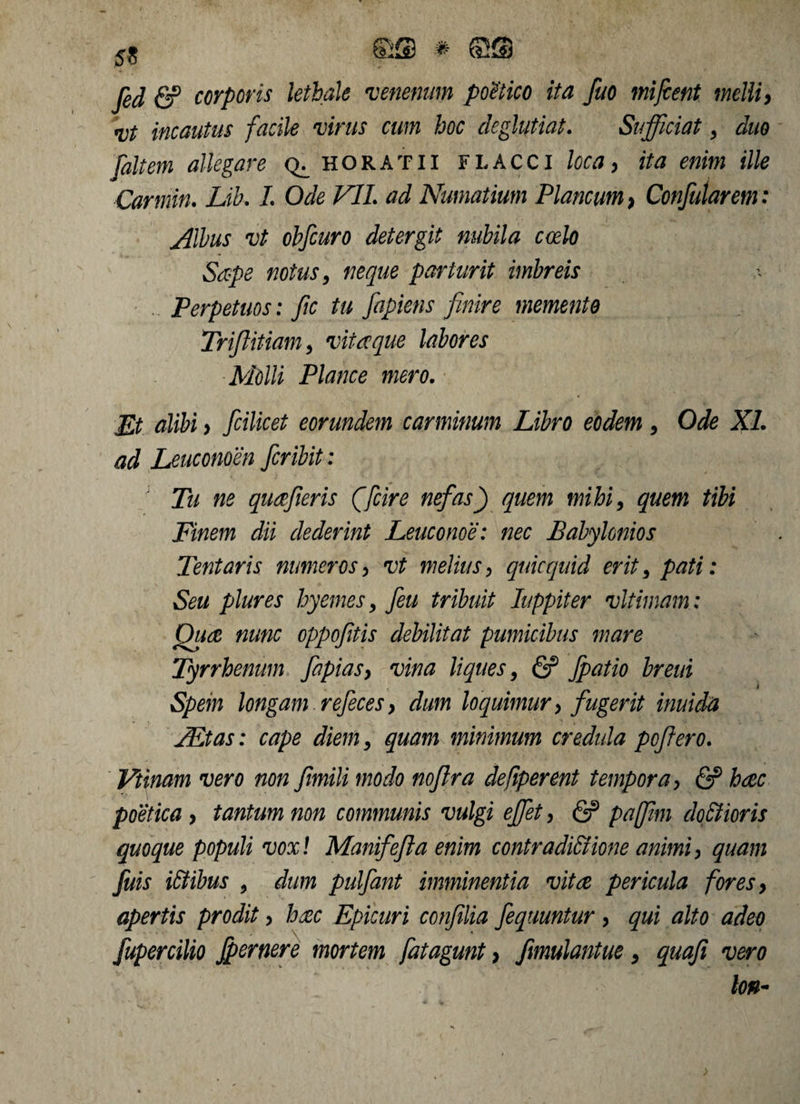 58
ſed & corporis lethale venenum poëtico ita ſuo miſcent melli,
vt incautus facile virus cum hoc deglutiat. Sufficiat, duo
ſaltem allegare Q. HORATII FLACCI loca, ita enim ille
Carmin. Lib. I. Ode VII. ad Numatium Plancum, Conſularem:
Albus vt obſcuro detergit nubila cœlo
Sæpe notus, neque parturit imbreis
Perpetuos: ſic tu ſapiens finire memento
Triſtitiam, vitæque labores
Molli Plance mero.
Et alibi, ſcilicet eorundem carminum Libro eodem, Ode XI.
ad Leuconoën ſcribit:
Tu ne quæſieris (ſcire nefas) quem mihi, quem tibi
Finem dii dederint Leuconoë: nec Babylonios
Tentaris numeros, vt melius, quicquid erit, pati:
Seu plures hyemes, ſeu tribuit Iuppiter vltimam:
Quæ nunc oppoſitis debilitat pumicibus mare
Tyrrhenum ſapias, vina liques, & ſpatio breui
Spem longam reſeces, dum loquimur, fugerit inuida
Ætas: cape diem, quam minimum credula poſtero.
Vtinam vero non ſimili modo noſtra deſiperent tempora, & hæc
poëtica, tantum non communis vulgi eſſet, & paſſim doctioris
quoque populi vox! Manifeſta enim contradictione animi, quam
ſuis ictibus , dum pulſant imminentia vitæ pericula fores,
apertis prodit, hæc Epicuri conſilia ſequuntur, qui alto adeo
ſupercilio ſpernere mortem ſatagunt, ſimulantue, quaſi vero
lon-